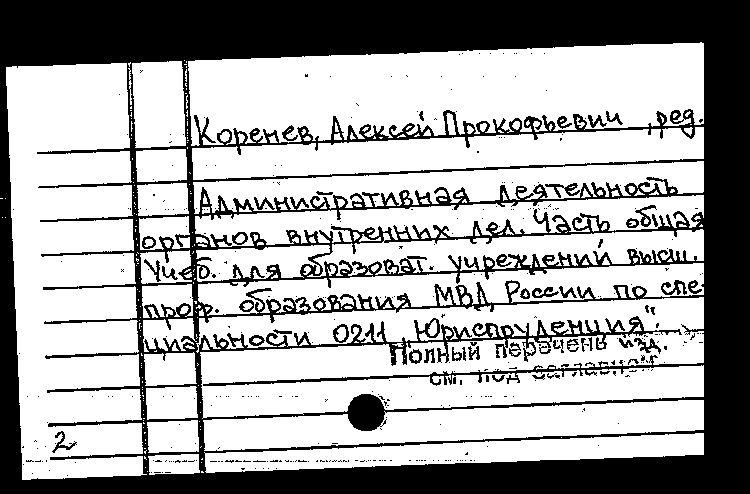 Коренев, Алексей Прокофьевич, ред.
Административная деятельность
органов внутренних дел. Часть общая
Учеб. для образоват. учреждений высш.
проф. образования МВД России по спе-
циальности 0211 "Юриспруденция".
Полный перечень изд.
см. под заглавием
2